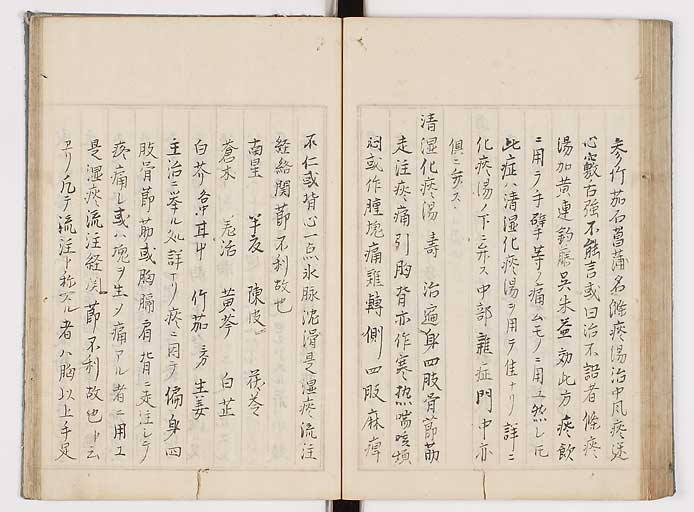 参竹茹石菖蒲名滌痰湯治中風痰迷
心竅舌強不能言或曰治不語者滌痰
湯加黄連釣藤呉朱益効此方痰飲
ニ用ラ手臂等ノ痛ムモノニ用ユ然レ𪜈
此症ハ清湿化痰湯ヲ用テ佳ナリ詳ニ
化痰湯ノ下ニ弁ス中部雜症門中亦
倶ニ弁ス
清湿化痰湯 壽 治遍身四肢骨節筋
走注疼痛引胸背亦作寒热喘咳煩
悶或作腫塊痛難轉側四肢麻痺
不仁或背心一点氷脉沈滑是湿痰流注
経絡関節不利故也
南星 半夏 陳皮 茯苓
蒼朮 羌活 黄芩 白芷
白芥 各中 甘中 竹茹 方 生姜
主治ニ挙ル処詳ナリ痰ニ因テ偏身四
肢骨節筋或胸膈肩背ニ走注シテ
疼痛シ或ハ塊ヲ生メ痛アル者ニ用ユ
是湿痰流注経関節不利故也ト云
ヨリ凡テ流注ト称スル者ハ胸以上手足